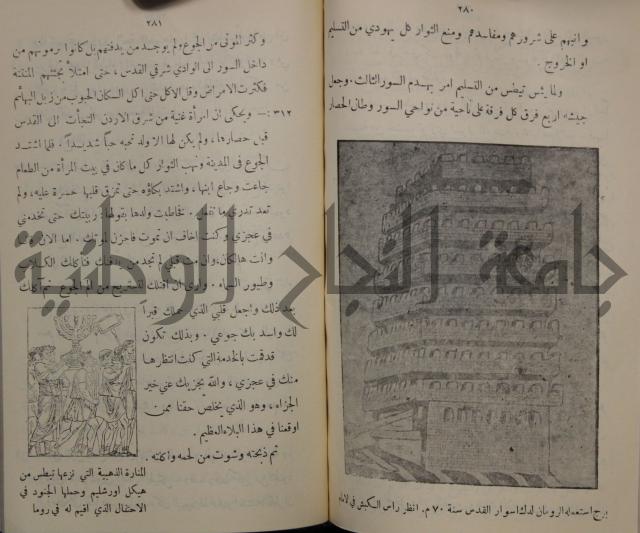 ٢٨٠
وانبهم على شرورهم ومفاسدهم ومنع الثوار كل يهودي من التسليم
او الخروج .
ولما يئس تيطس من التسليم امر بهدم السور الثالث . وجعل
جيشه اربع فرق كل فرقة على ناحية من نواحي السور وطال الحصار
برج استعمله الرومان لدك اسوار القدس سنة ٧٠ م. انظر راس الكبش في
٢٨١
وكثر الموتى من الجوع ولم يوجد من يدفنهم بل كانوا يرمونهم من
داخل السور الى الوادي شرقي القدس ، حتى امتلأ بجثثهم المنتنة
فكثرت الامراض وقل الاكل حتى اكل السكان الحبوب من زبل البهائم
٣١٢ :— ويحكى ان امرأة غنية من شرق الاردن التجأت الى القدس
قبل حصارها ، ولم يكن لها الا ولد تحبه حباً شديداً ، فلما اشتد
الجوع في المدينة ونهب الثوار كل ما كان في بيت المرأة من الطعام
جاعت وجاع ابنها ، واشتد بكاؤه حتى تمزق قلبها حسرة عليه ، ولم
تعد تدري ما تفعل . فخاطبت ولدها بقولها : ربيتك حتى تخدمني
في عجزي وكنت اخاف ان تموت فاحزن لموتك . اما الان
وانت هالكان وان مت قبلي لم تجد من يدفنك فتأكلك الكلاب
وطيور السماء . وارى ان اقتلك لتستريح من الم الجوع ثم آكلك
بعد ذلك واجعل قلبي الذي حملك قبراً
لك واسد بك جوعي . وبذلك تكون
قد قمت بالخدمة التي كنت انتظرها
منك في عجزي ، والله يجزيك عني خير
الجزاء ، وهو الذي يخلص حقنا ممن
اوقعنا في هذا البلاء العظيم .
ثم ذبحته وشوت من لحمه واكلته .
المنارة الذهبية التي نزعها تيطس من
هيكل اورشليم وحملها الجنود في
الاحتفال الذي اقيم له في روما
جامعة النجاح الوطنية